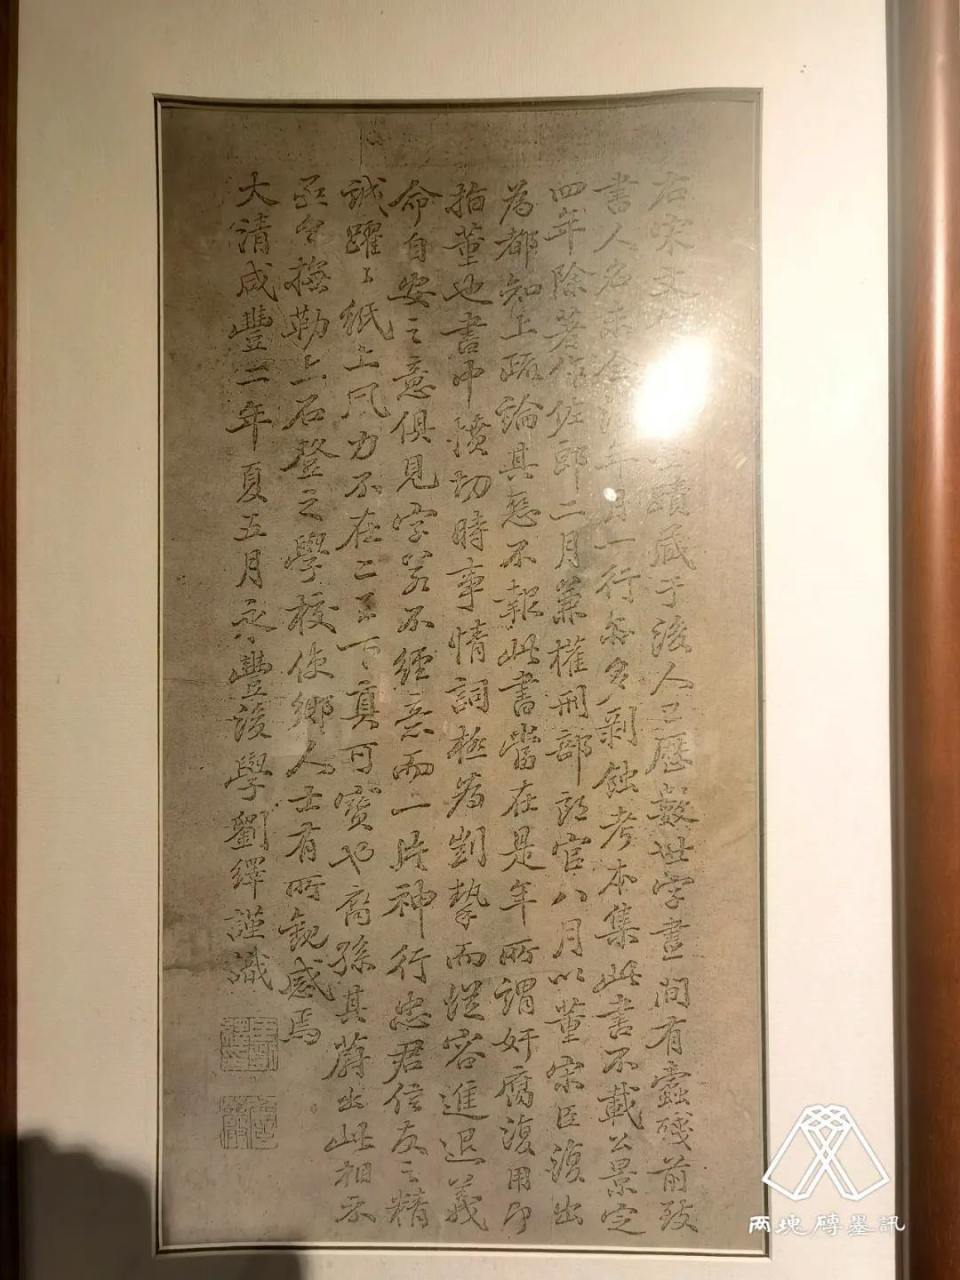 右宋文墨蹟藏于後人已歷數世字畫間有蠹殘前致
書人名年月一行無多剥蝕考本集此書不載公景定
四年除著作佐郎二月兼權刑部郎官八月以董宋臣復出
為都知上疏論其惡不報此書當在是年所謂奸腐復用即
指董也書中憤切時事情詞極為剴摯而從容進退義
命自安之意俱見字若不經意而一片神行忠君信友之精
誠躍躍紙上風力不在二王下真可寶也裔孫其蔚出此相示
亟令撫勒上石登之學校使鄉人士有所觀感焉
大清咸豐二年夏五月永豐後學劉繹謹識
两塊磚墨訊